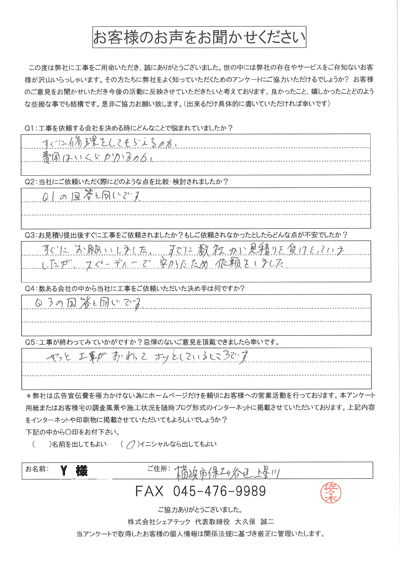 お客様のお声をお聞かせください
この度は弊社に工事をご用命いただき、誠にありがとうございました。世の中には弊社の存在やサービスをご存知ないお客
様が沢山いらっしゃいます。その方たちに弊社をよく知っていただくためのアンケートにご協力いただけるでしょうか? お客様
のご意見をお聞かせいただき今後の活動に反映させていただきたいと考えております。良かったこと、嬉しかったことどのよう
な些細な事でも結構です。是非ご協力お願い致します。(出来るだけ具体的に書いていただければ幸いです)
Q1:工事を依頼する会社を決める時にどんなことで悩まれていましたか?
すぐに修理をしてもらえるのか、
費用はいくらかかるのか、
Q2:当社にご依頼いただく際にどのような点を比較・検討されましたか?
Q1の回答と同じです
Q3:お見積り提出後すぐに工事をご依頼されましたか?もしご依頼されなかったとしたらどんな点が不安でしたか?
すぐにお願いしました。すでに数社から見積りを受けとっていま
したが、スピーディーで安かったため依頼をしました
Q4:数ある会社の中から当社に工事をご依頼いただいた決め手は何ですか?
Q3の回答と同じです
Q5:工事が終わってみていかがですか?忌憚のないご意見を頂戴できましたら幸いです。
やっと工事がおわってホッとしているところです
*弊社は広告宣伝費を極力かけない為にホームページだけを頼りにお客様への営業活動を行っております。本アンケート
用紙またはお客様宅の調査風景や施工状況を随時ブログ形式のインターネットに掲載させていただいております。上記内容
をインターネットや印刷物に掲載させていただいてもよろしいでしょうか?
下記の中から〇印をお付け下さい。
( )名前を出してもよい (〇)イニシャルなら出してもよい
お名前: Y 様 ご住所: 横浜市保土ヶ谷区上星川
FAX 045-476-9989
ご協力ありがとうございました。
株式会社シェアテック 代表取締役 大久保 誠二
当アンケートで取得したお客様の個人情報は関係法規に基づき厳正に管理いたします。